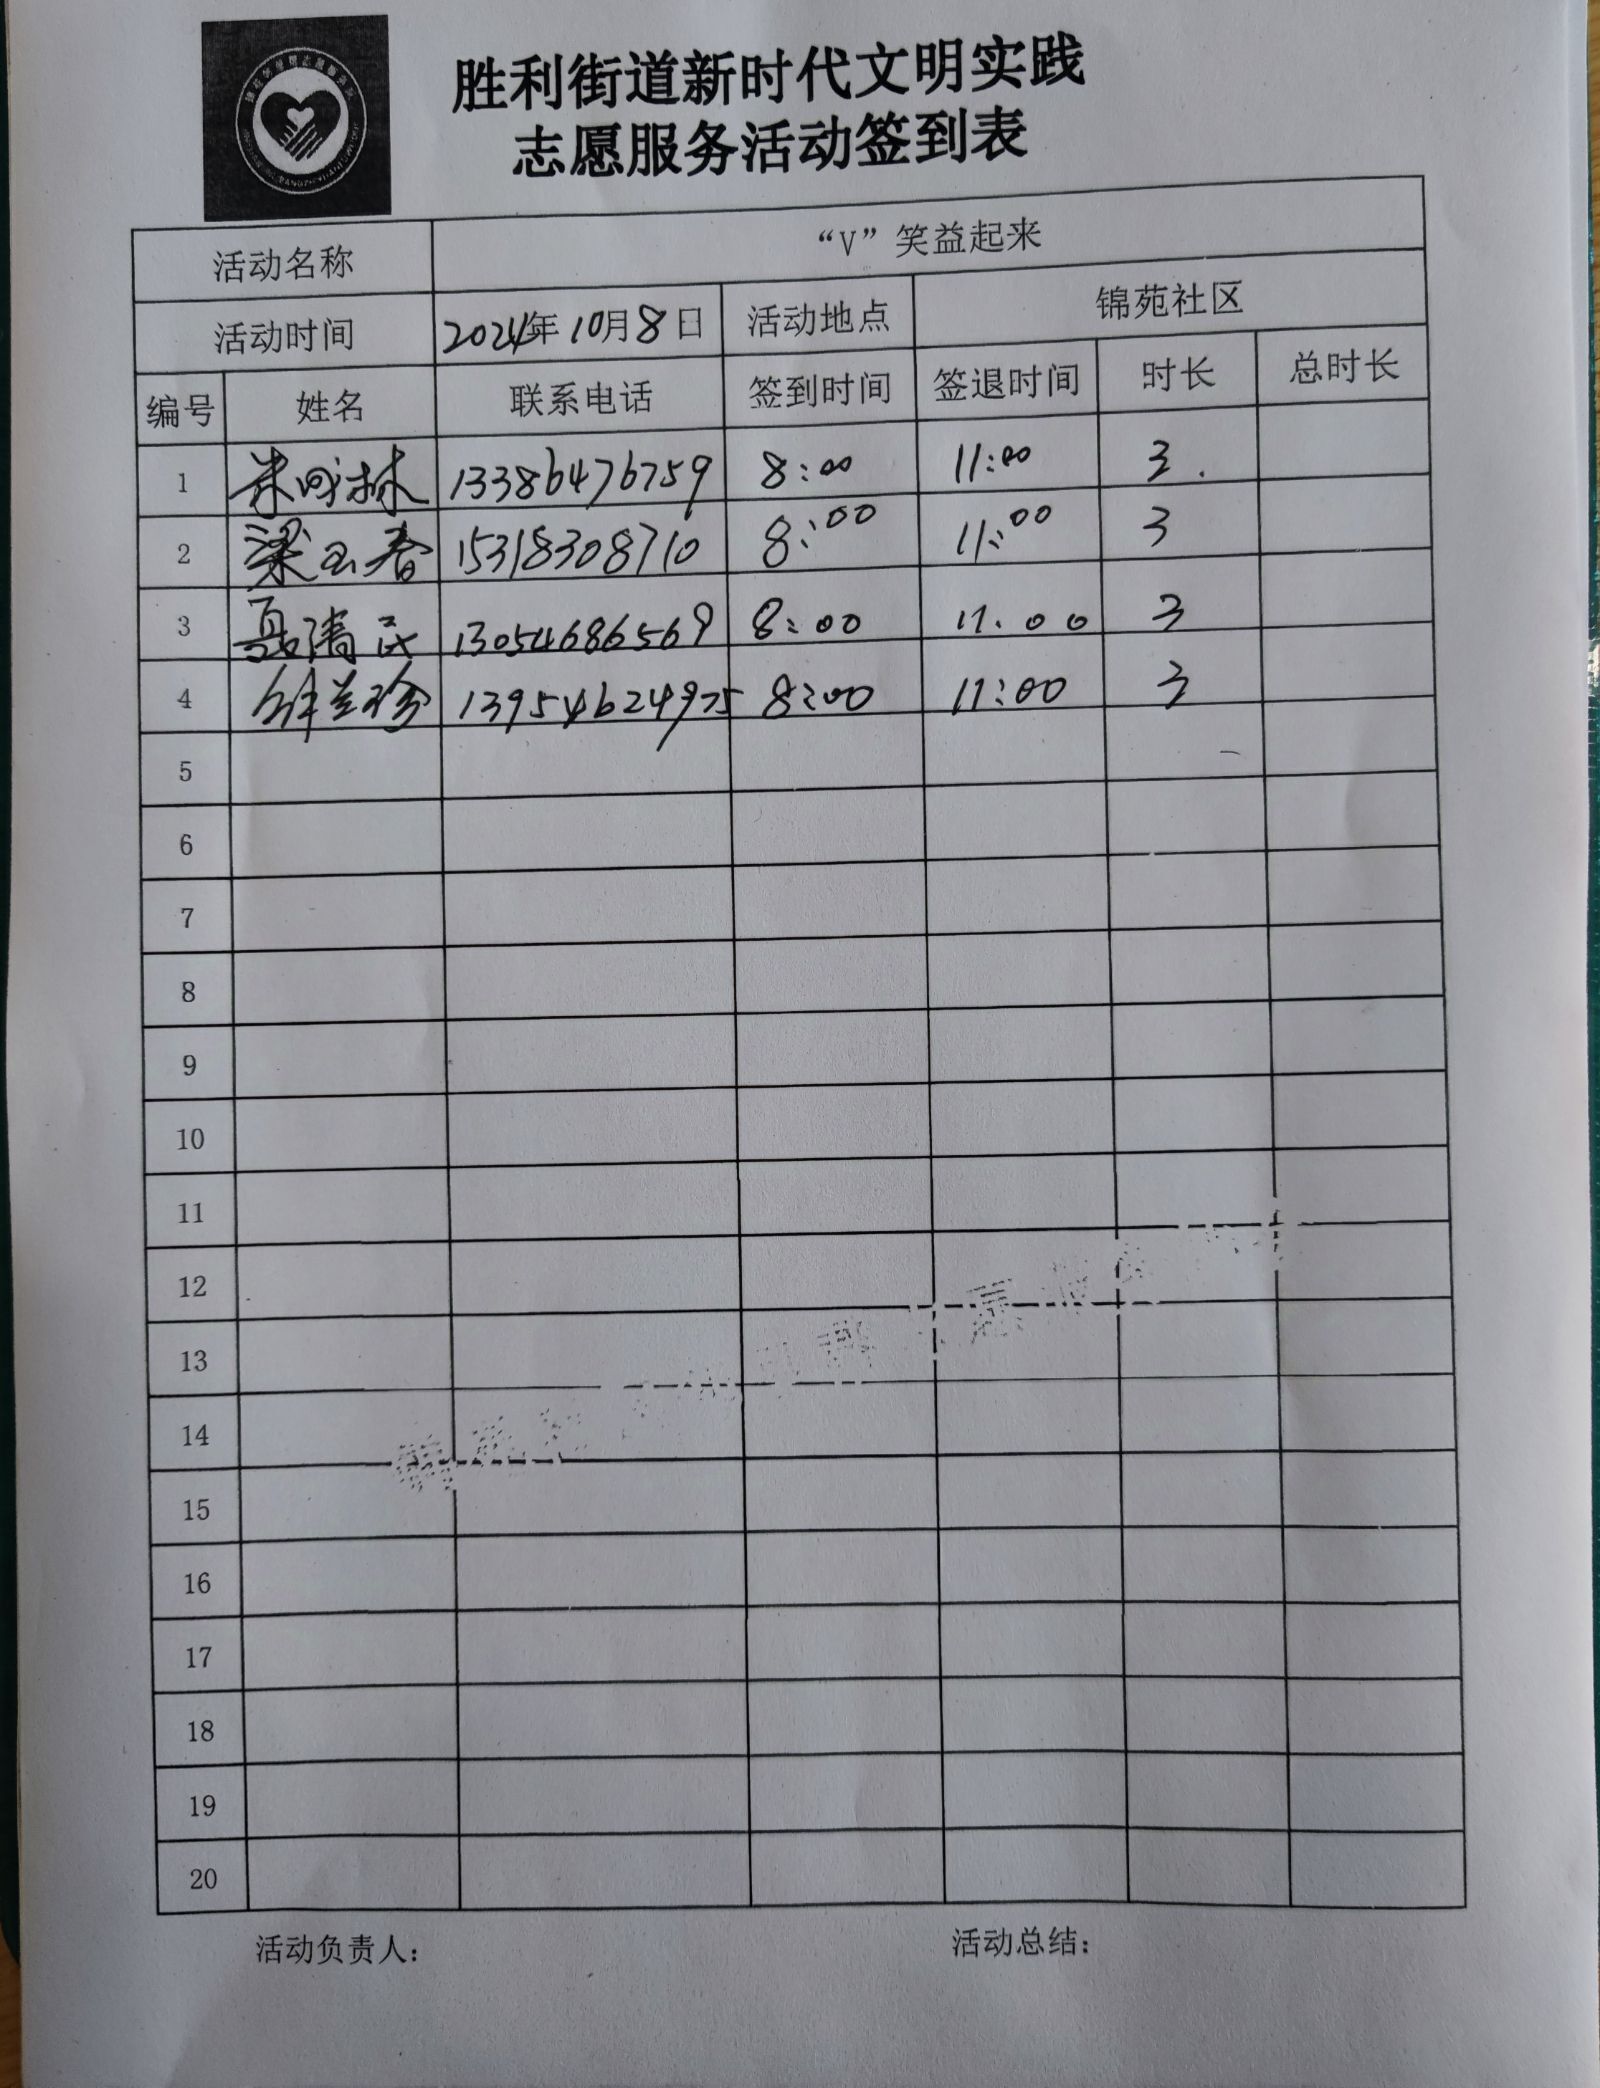 胜利街道新时代文明实践
志愿服务活动签到表
活动名称 “V”笑益起来
活动时间 2024年10月8日 活动地点 锦苑社区
编号 姓名 联系电话 签到时间 签退时间 时长 总时长
1 林 13386476759 8:00 11:00 3.
2 梁玉春 15318308710 8:00 11:00 3
3 聂清民 13054686569 8:00 11.00 3
4 兰珍 13954624975 8:00 11:00 3
5
6
7
8
9
10
11
12
13
14
15
16
17
18
19
20
活动负责人： 活动总结：